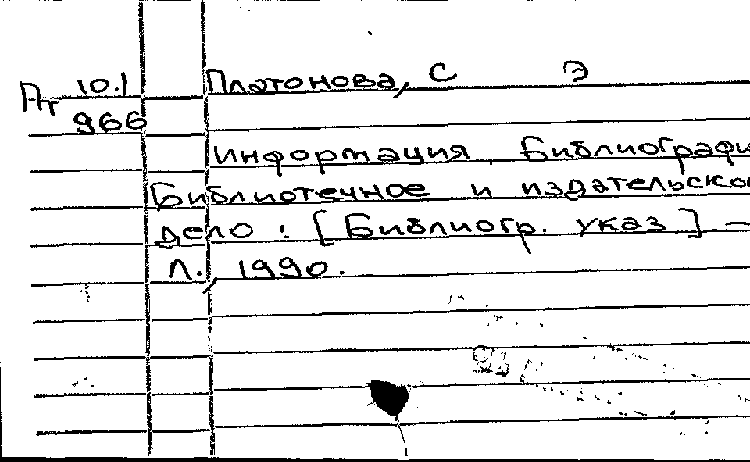 Пт 10.1 Платонова, С Э
966
Информация. Библиографи
Библиотечное и издательско
дело : [Библиогр. указ] –
Л., 1990.